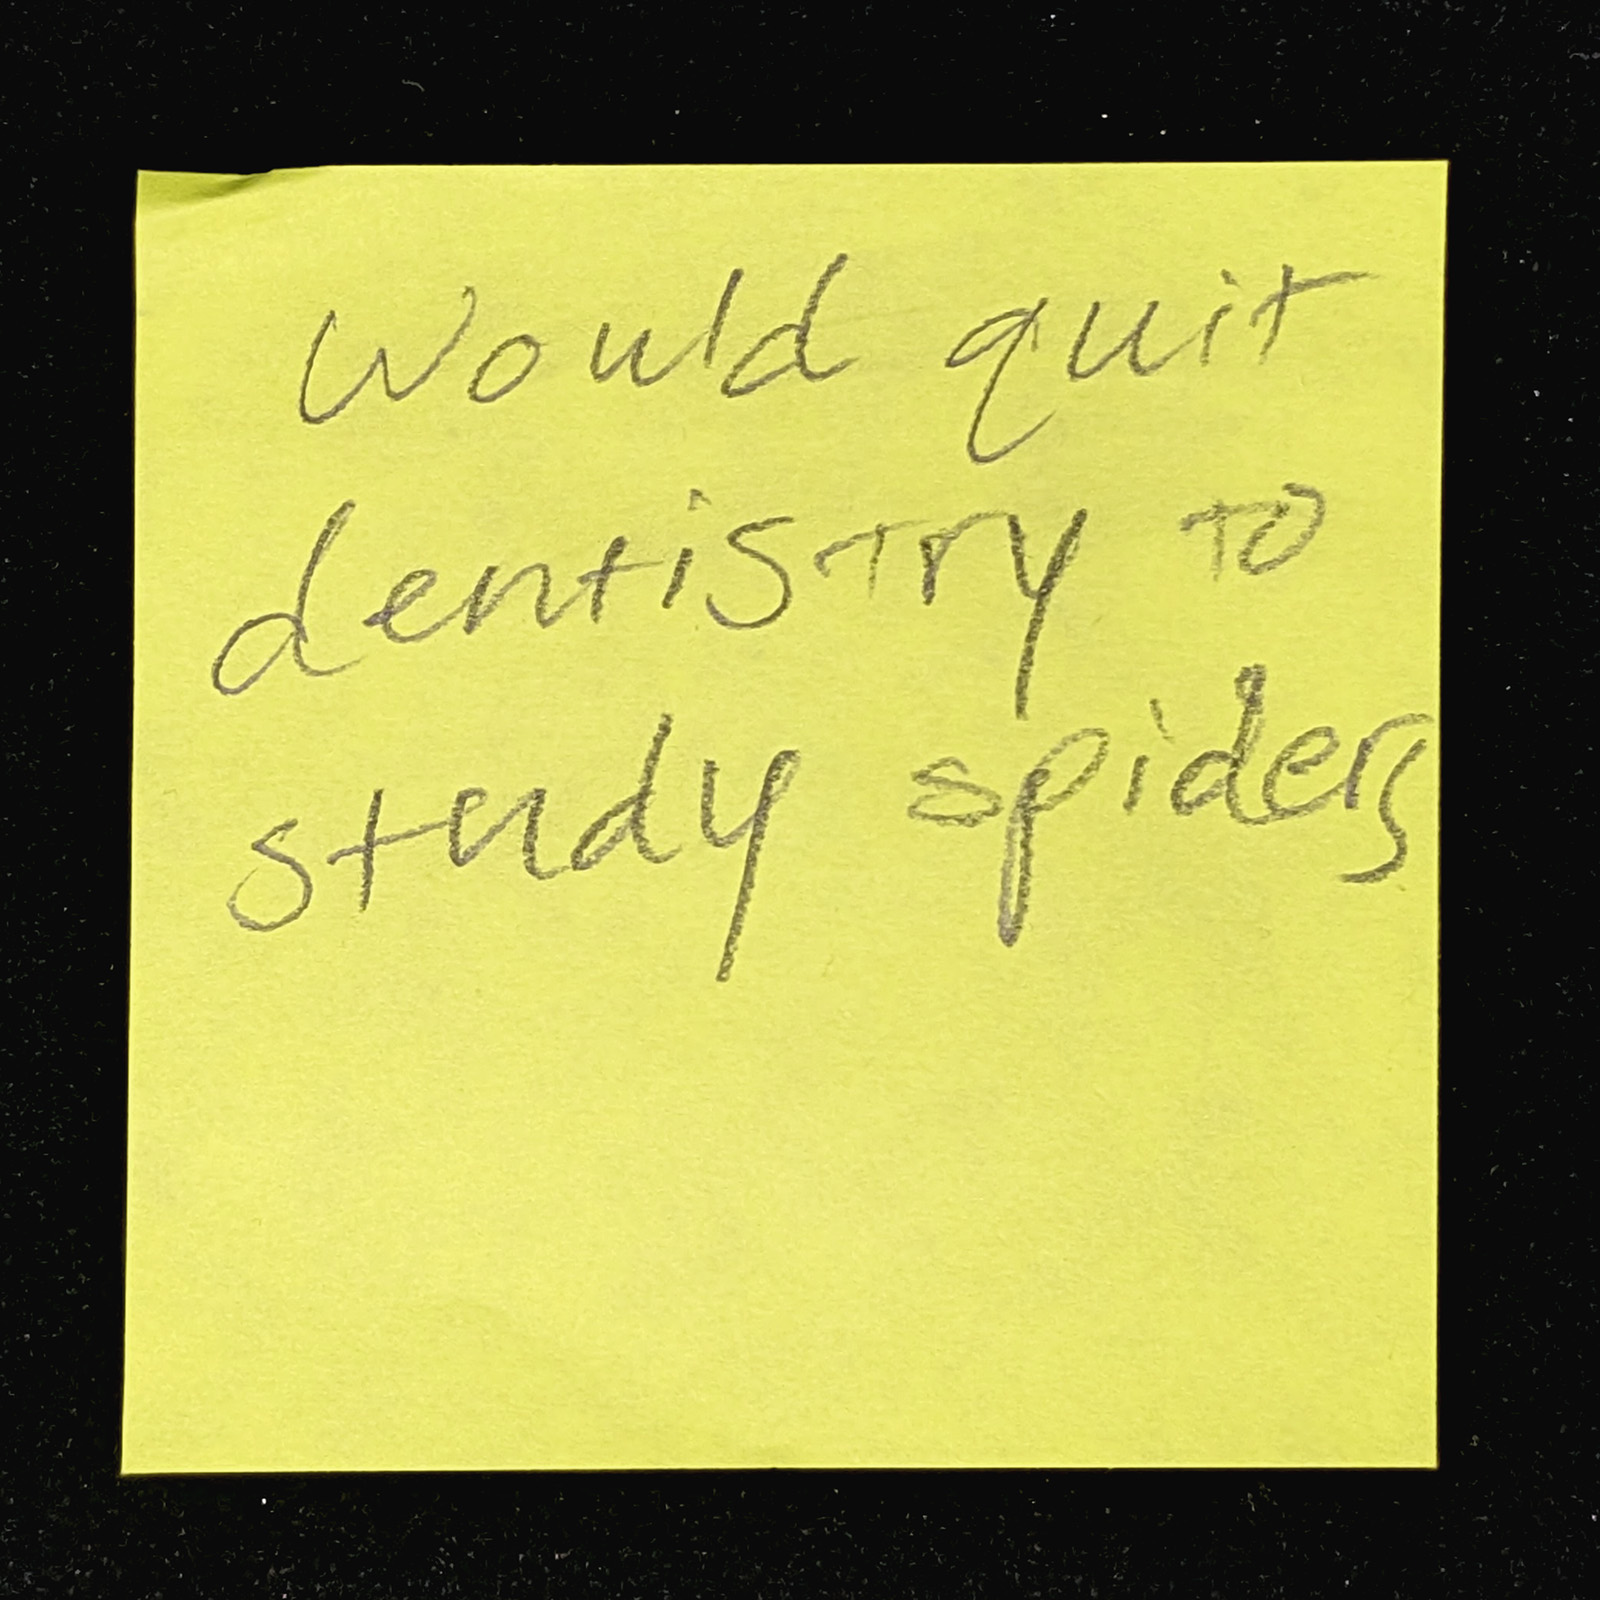 Would quit
dentistry to
study spiders